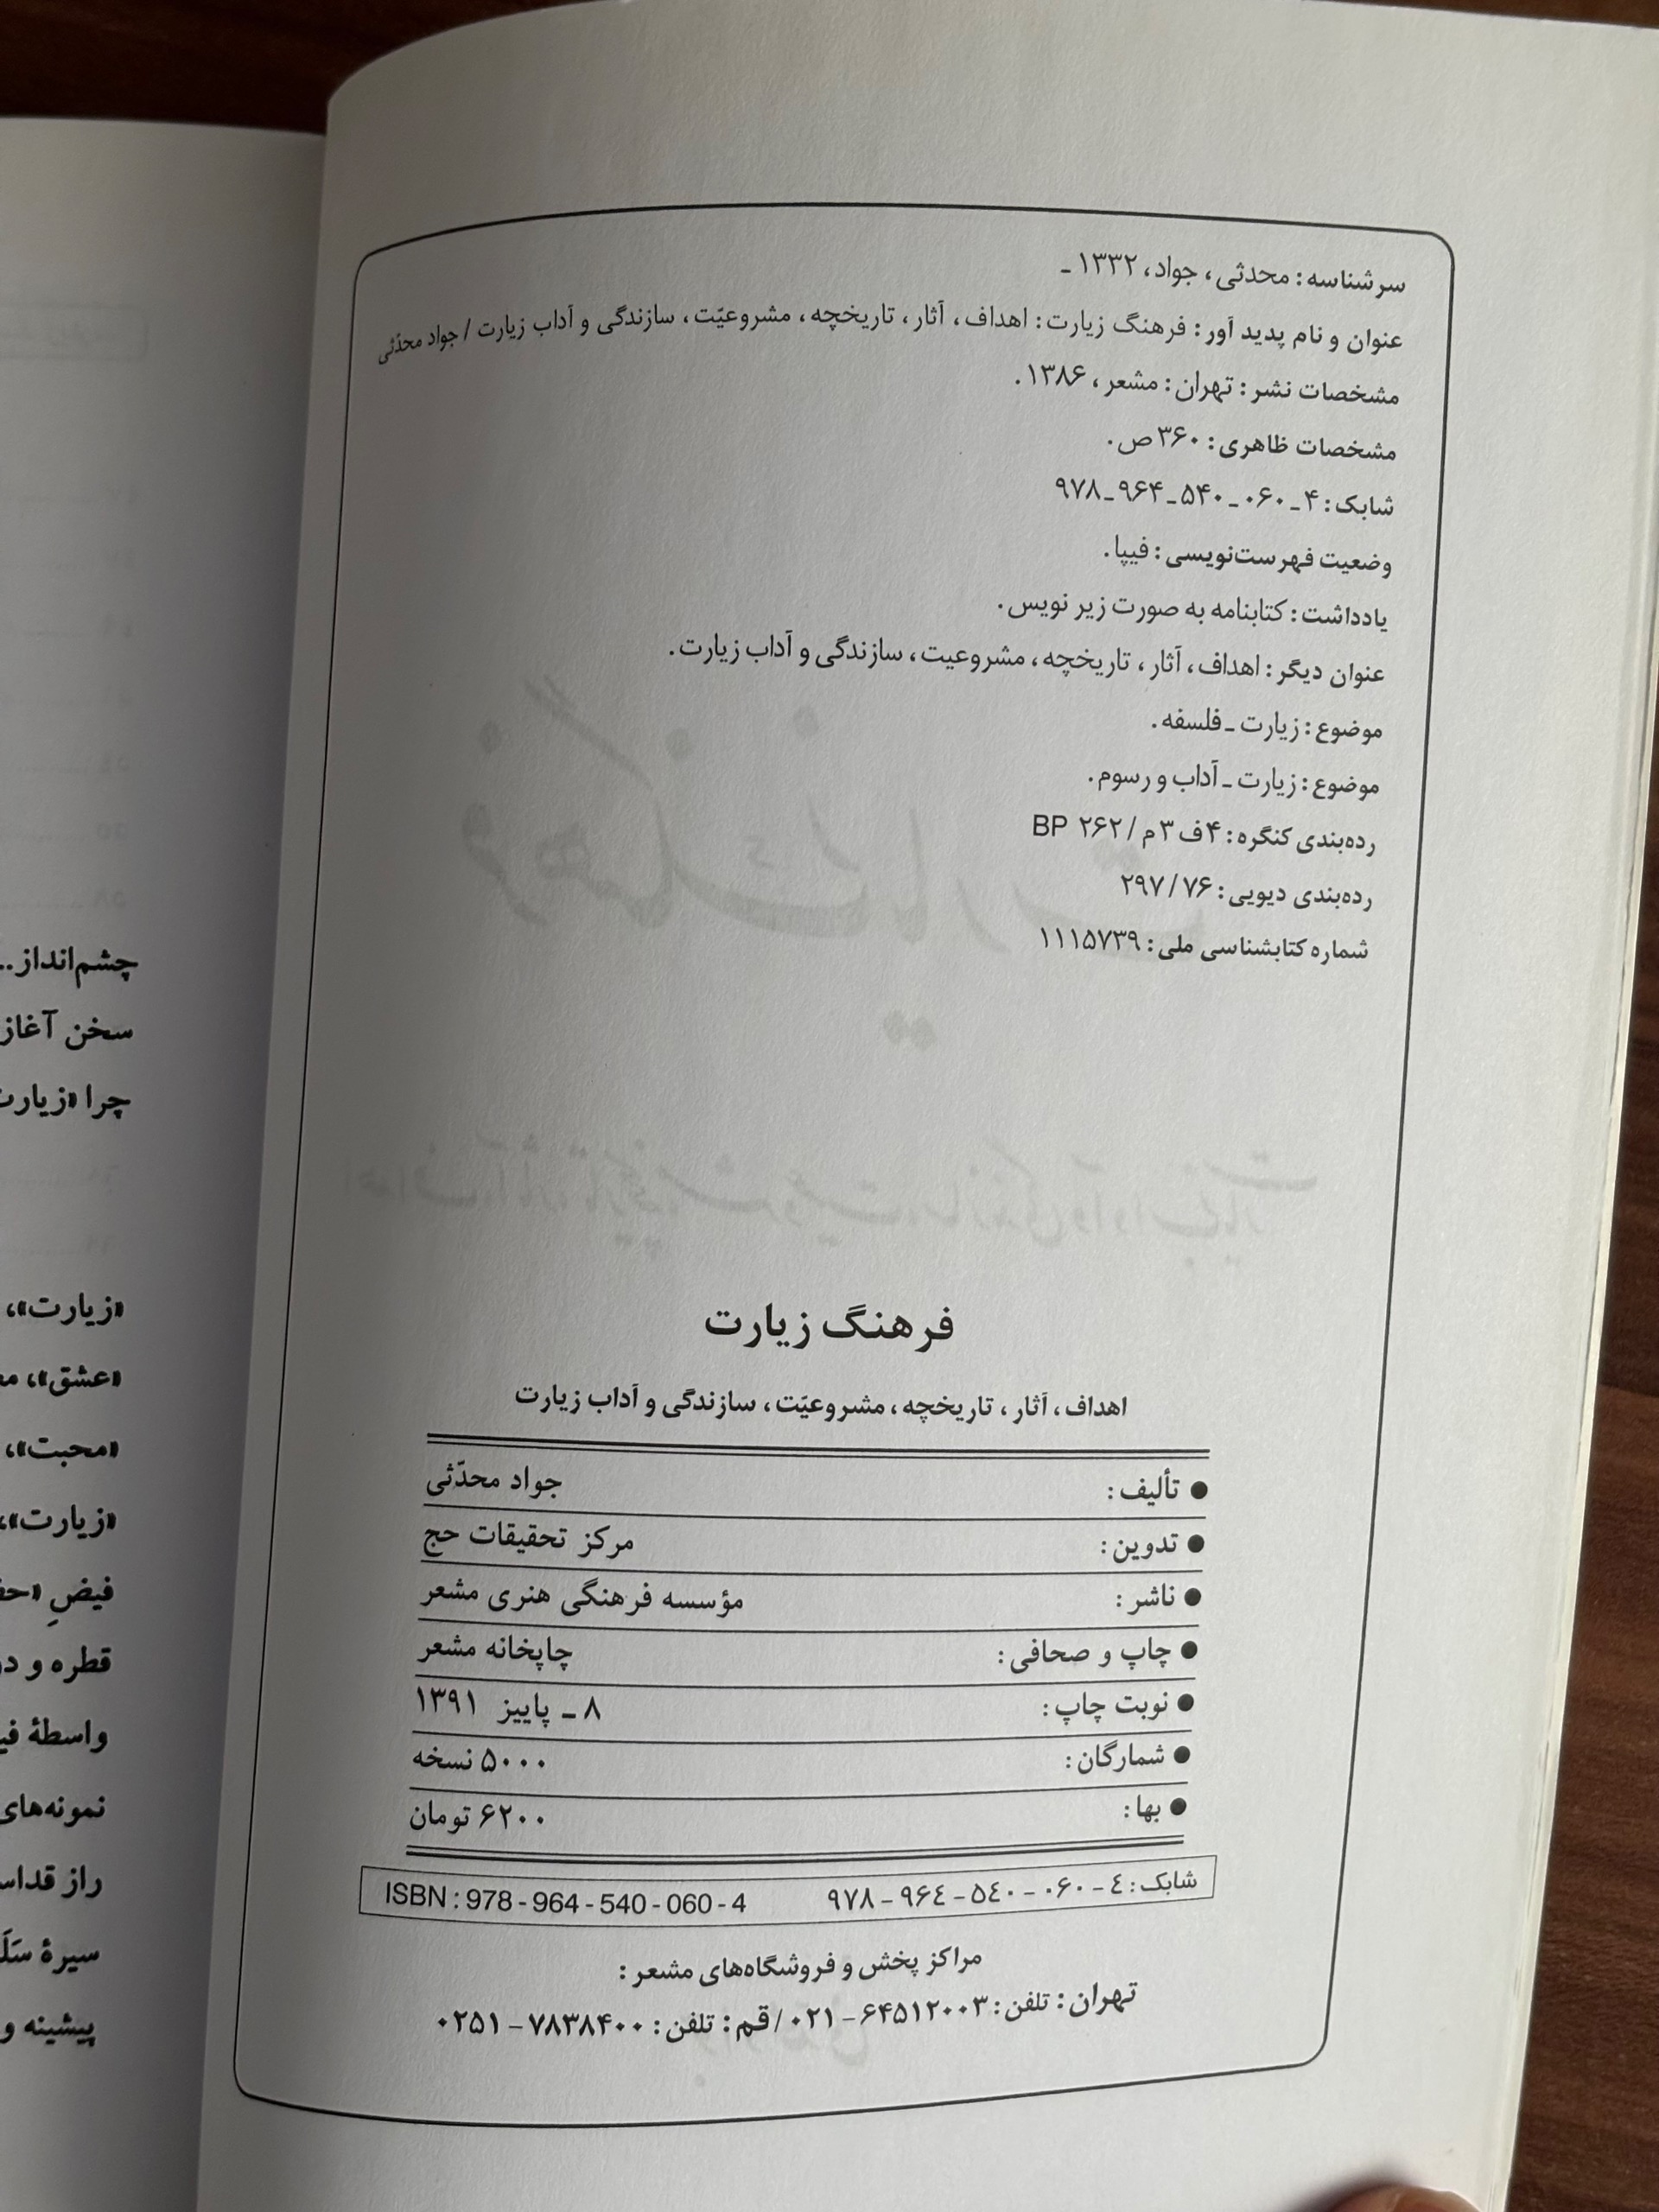 سرشناسه: محدثی، جواد، ۱۳۳۲ ـ
عنوان و نام پدید آور: فرهنگ زیارت: اهداف، آثار، تاریخچه، مشروعیّت، سازندگی و آداب زیارت / جواد محدّثی
مشخصات نشر: تهران: مشعر، ۱۳۸۶.
مشخصات ظاهری: ۳۶۰ ص.
شابک: ۴ ـ ۰۶۰ ـ ۵۴۰ ـ ۹۶۴ ـ ۹۷۸
وضعیت فهرست‌نویسی: فیپا.
یادداشت: کتابنامه به صورت زیر نویس.
عنوان دیگر: اهداف، آثار، تاریخچه، مشروعیت، سازندگی و آداب زیارت.
موضوع: زیارت ـ فلسفه.
موضوع: زیارت ـ آداب و رسوم.
رده‌بندی کنگره: ۴ ف ۳ م / ۲۶۲ BP
رده‌بندی دیویی: ۲۹۷/۷۶
شماره کتابشناسی ملی: ۱۱۱۵۷۳۹
فرهنگ زیارت
اهداف، آثار، تاریخچه، مشروعیّت، سازندگی و آداب زیارت
● تألیف: جواد محدّثی
● تدوین: مرکز تحقیقات حج
● ناشر: مؤسسه فرهنگی هنری مشعر
● چاپ و صحافی: چاپخانه مشعر
● نوبت چاپ: ۸ ـ پاییز ۱۳۹۱
● شمارگان: ۵۰۰۰ نسخه
● بها: ۶۲۰۰ تومان
شابک: ٤ – ٠٦٠ – ٥٤٠ – ٩٦٤ – ٩٧٨ ISBN : 978 - 964 - 540 - 060 - 4
مراکز پخش و فروشگاه‌های مشعر:
تهران: تلفن: ۶۴۵۱۲۰۰۳ – ۰۲۱ / قم: تلفن: ۷۸۳۸۴۰۰ – ۰۲۵۱
چشم‌انداز..
سخن آغاز
چرا «زیارت
«زیارت»،
«عشق»،
«محبت»،
«زیارت»،
فیضِ
قطره و
واسطهٔ
نمونه‌های
راز
سیرهٔ
پیشینه و